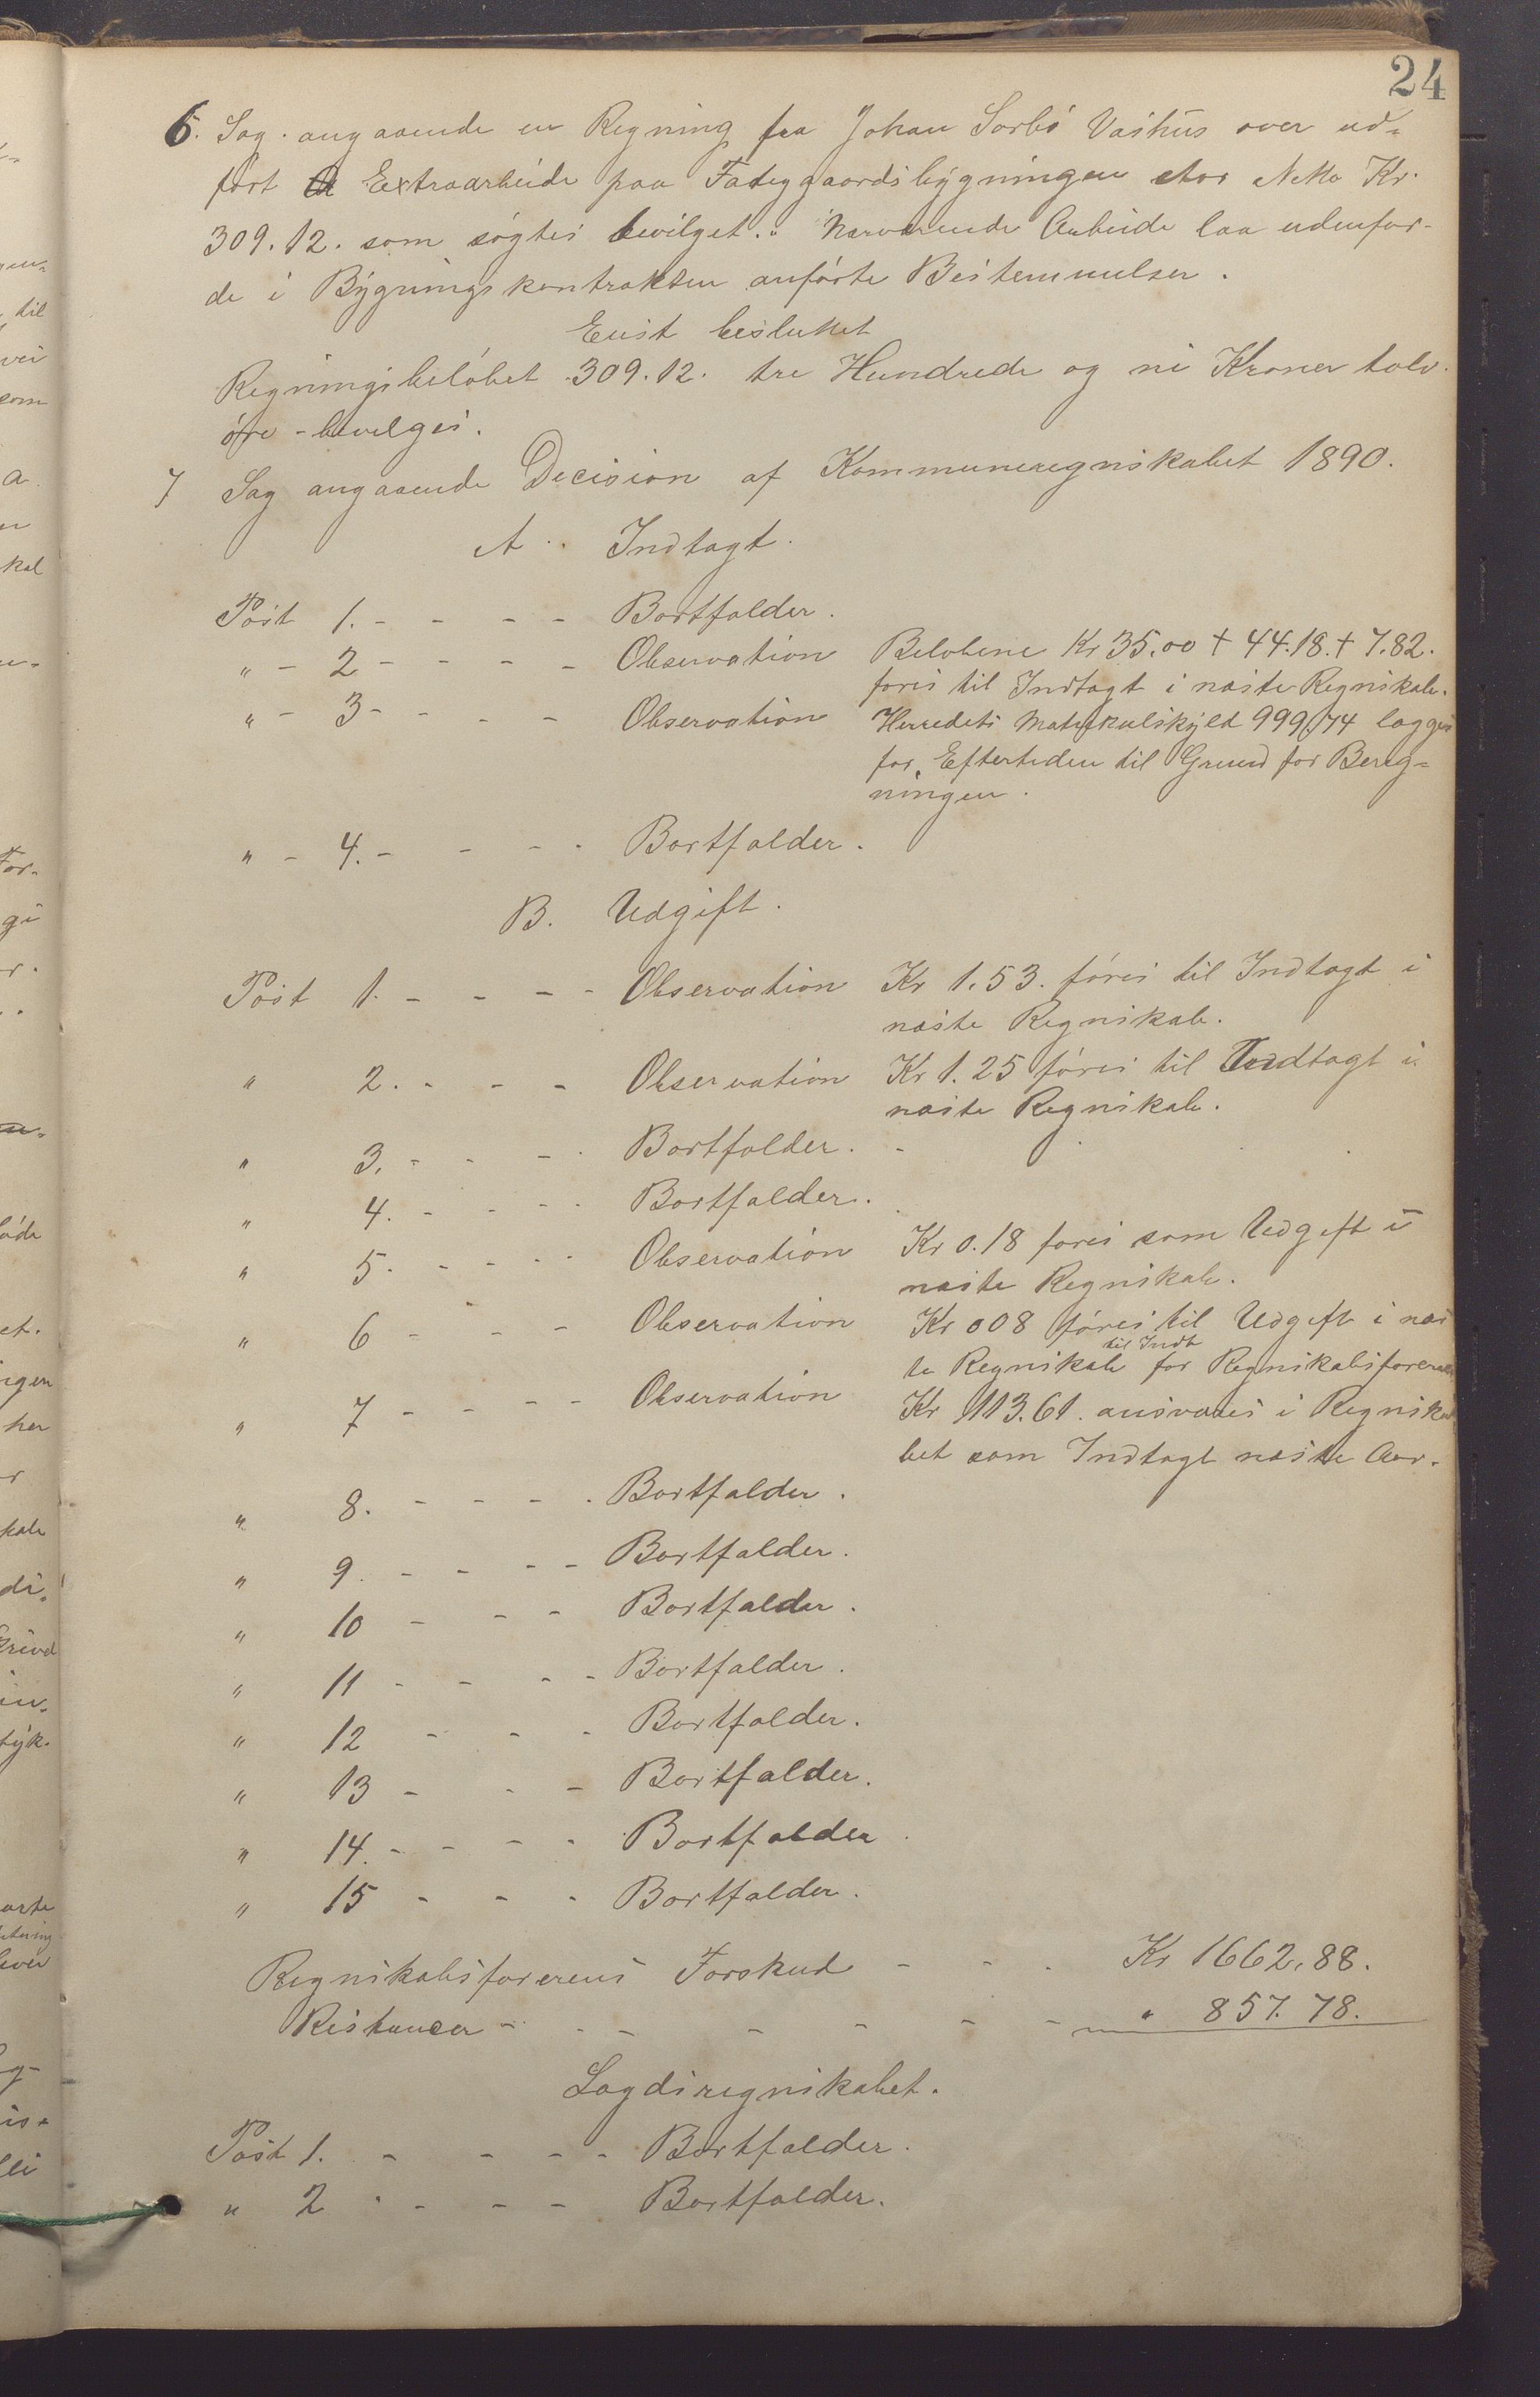 24
6. Sag angaaende en Regning fra Johan Sørbø Vashus over ud-
ført Extraarbeide paa Fattiggaardsbygningen stor Netto Kr.
309.12. som søgtes bevilget. Nærværende Arbeide laa udenfor
de i Bygningskontrakten anførte Bestemmelser.
Enst besluttet
Regningsbeløbet 309.12. tre Hundrede og ni Kroner tolv
øre - bevilges.
7 Sag angaaende Decision af Kommuneregnskabet 1890.
A. Indtægt.
Post 1. - - - - Bortfalder.
" - 2 - - - - Observation Beløbene Kr 35.00 + 44.18. + 7.82.
føres til Indtægt i næste Regnskab.
" - 3 - - - - Observation Herredets Matrikulskyld 999,74 lægges
for Eftertiden til Grund for Bereg-
ningen.
" - 4. - - - - Bortfalder.
B. Udgift.
Post 1. - - - - Observation Kr 1.53. føres til Indtægt i
næste Regnskab.
" 2. - - - Observation Kr 1.25 føres til Indtægt i
næste Regnskab.
" 3. - - - - Bortfalder.
" 4. - - - - Bortfalder.
" 5. - - - - Observation Kr 0.18 føres som Udgift i
næste Regnskab.
" 6 - - - Observation Kr 008 føres til Udgift i næs
til Indt
te Regnskab for Regnskabsføreren
" 7 - - - - Observation Kr 113.61. ansvares i Regnska
bet som Indtægt næste Aar.
" 8. - - - - Bortfalder.
" 9. - - - - Bortfalder.
" 10 - - - Bortfalder.
" 11 - - - - Bortfalder.
" 12 - - - Bortfalder.
" 13 - - - Bortfalder.
" 14. - - - - Bortfalder
" 15 - - - Bortfalder.
Regnskabsførerens Forskud - - - Kr 1662,88.
Restancer - - - - - - - " 857.78.
Lægdsregnskabet.
Post 1. - - - - Bortfalder.
" 2 - - - - Bortfalder.